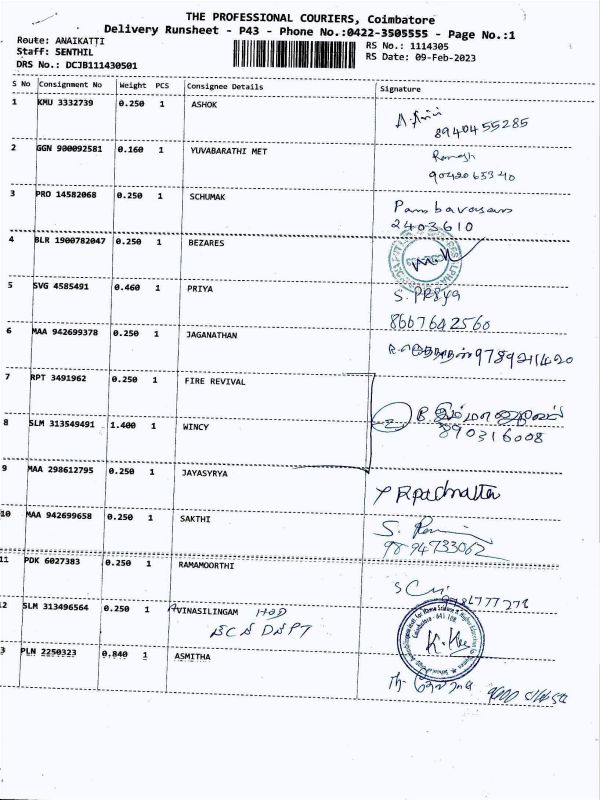 THE PROFESSIONAL COURIERS, Coimbatore
Delivery Runsheet - P43 - Phone No.:0422-3505555 - Page No.:1
Route: ANAIKATTI
RS No.: 1114305
Staff: SENTHIL
RS Date: 09-Feb-2023
DRS No.: DCJB111430501
S No Consignment No Weight PCS Consignee Details Signature
1 KMU 3332739 0.250 1 ASHOK
8940455285
2 GGN 900092581 0.160 1 YUVABARATHI MET
Ramesh
3 PRO 14582068 0.250 1 SCHUMAK
2403610
4 BLR 1900782047 0.250 1 BEZARES
5 SVG 4585491 0.460 1 PRIYA
S. PRIya
8667642560
6 MAA 942699378 0.250 1 JAGANATHAN
7 RPT 3491962 0.250 1 FIRE REVIVAL
8 SLM 313549491 1.400 1 WINCY
2 B
890316008
9 MAA 298612795 0.250 1 JAYASYRYA
10 MAA 942699658 0.250 1 SAKTHI
S.
9894733062
11 PDK 6027383 0.250 1 RAMAMOORTHI
2 SLM 313496564 0.250 1 AVINASILINGAM HOD
DEPT
3 PLN 2250323 0.840 1 ASMITHA